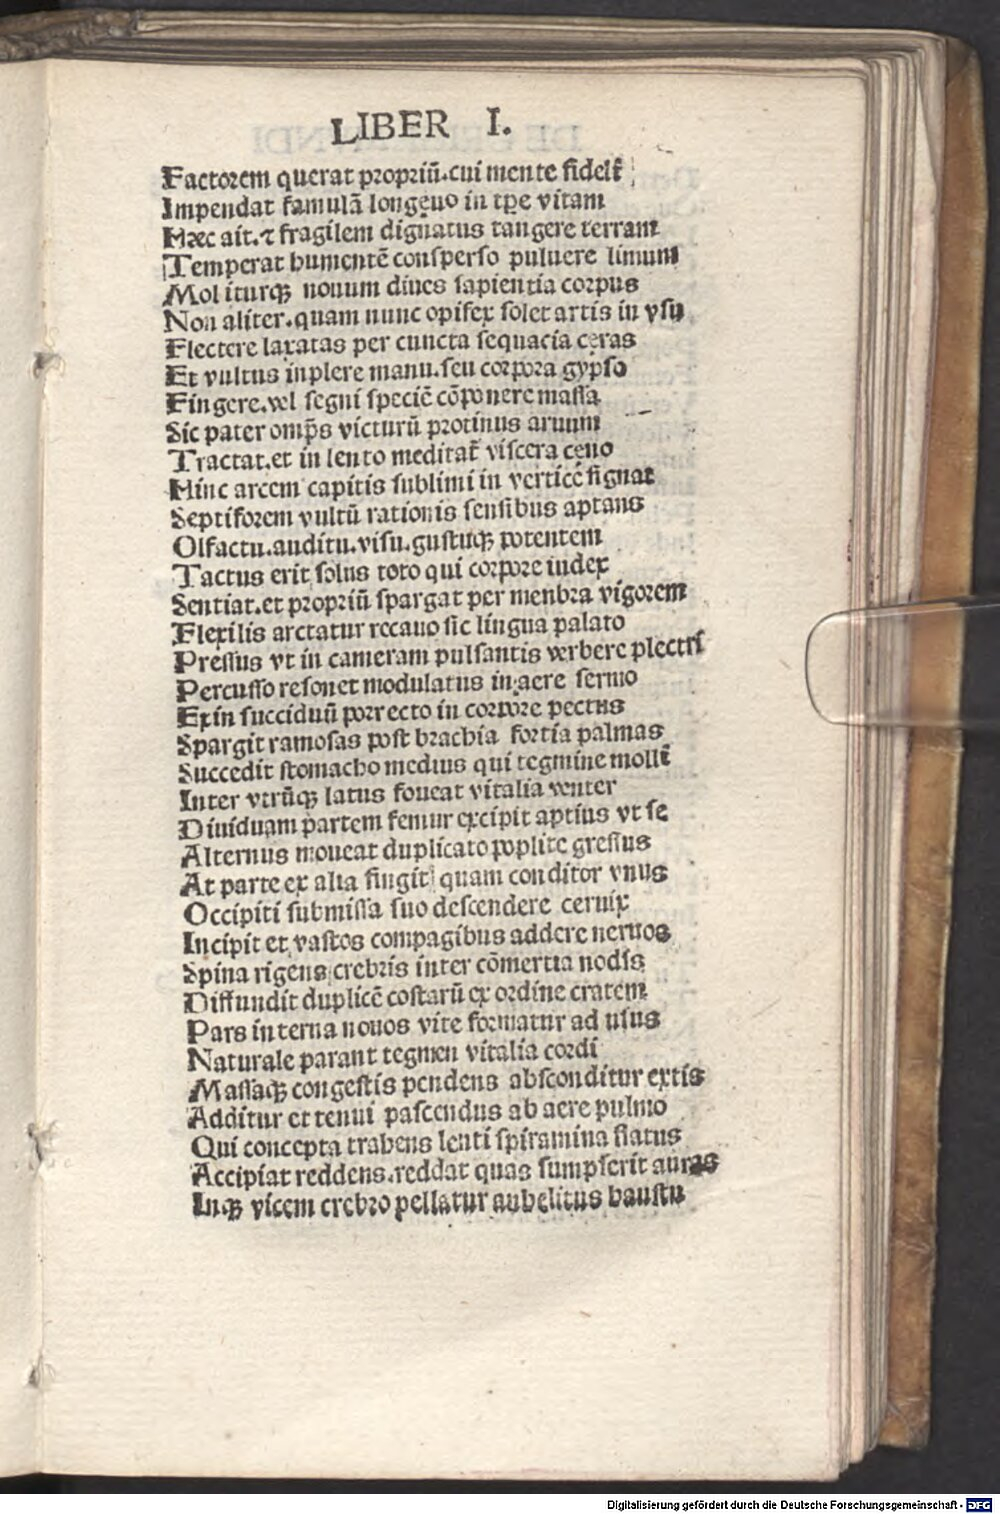 LIBER I.
Factorem querat propriũ.cui mente fidelĩ
Impendat famulã longęuo in tp̃e vitam
Hæc ait.⁊ fragilem dignatus tangere terram
Temperat humentẽ consperso puluere limum
Moliturqꝫ nouum diues sapientia corpus
Non aliter.quam nunc opifex solet artis in vsu
Flectere laxatas per cuncta sequacia cęras
Et vultus inplere manu.seu corpora gypso
Fingere.vel segni speciẽ cõponere massa
Sic pater omp̃s victurũ protinus aruum
Tractat.et in lento meditat̃ viscera cęno
Hinc arcem capitis sublimi in verticẽ signat
Septiforem vultũ rationis sensibus aptans
Olfactu.auditu.visu.gustuqꝫ potentem
Tactus erit solus toto qui corpore iudex
Sentiat.et propriũ spargat per menbra vigorem
Flexilis arctatur recauo sic lingua palato
Pressus vt in cameram pulsantis verbere plectri
Percusso resonet modulatus in aere sermo
Exin succiduũ porrecto in corpore pectus
Spargit ramosas post brachia fortia palmas
Succedit stomacho medius qui tegmine mollĩ
Inter vtrũqꝫ latus foueat vitalia venter
Diuiduam partem femur excipit aptius vt se
Alternus moueat duplicato poplite gressus
At parte ex alia fingit quam conditor vnus
Occipiti submissa suo descendere ceruix
Incipit et vastos compagibus addere neruos
Spina rigens crebris inter cõmertia nodis
Diffundit duplicẽ costarũ ex ordine cratem
Pars interna nouos vite formatur ad usus
Naturale parant tegmen vitalia cordi
Massaqꝫ congestis pendens absconditur extis
Additur et tenui pascendus ab aere pulmo
Qui concepta trahens lenti spiramina flatus
Accipiat reddens.reddat quas sumpserit auras
Inqꝫ vicem crebro pellatur anhelitus haustu
Digitalisierung gefördert durch die Deutsche Forschungsgemeinschaft - DFG